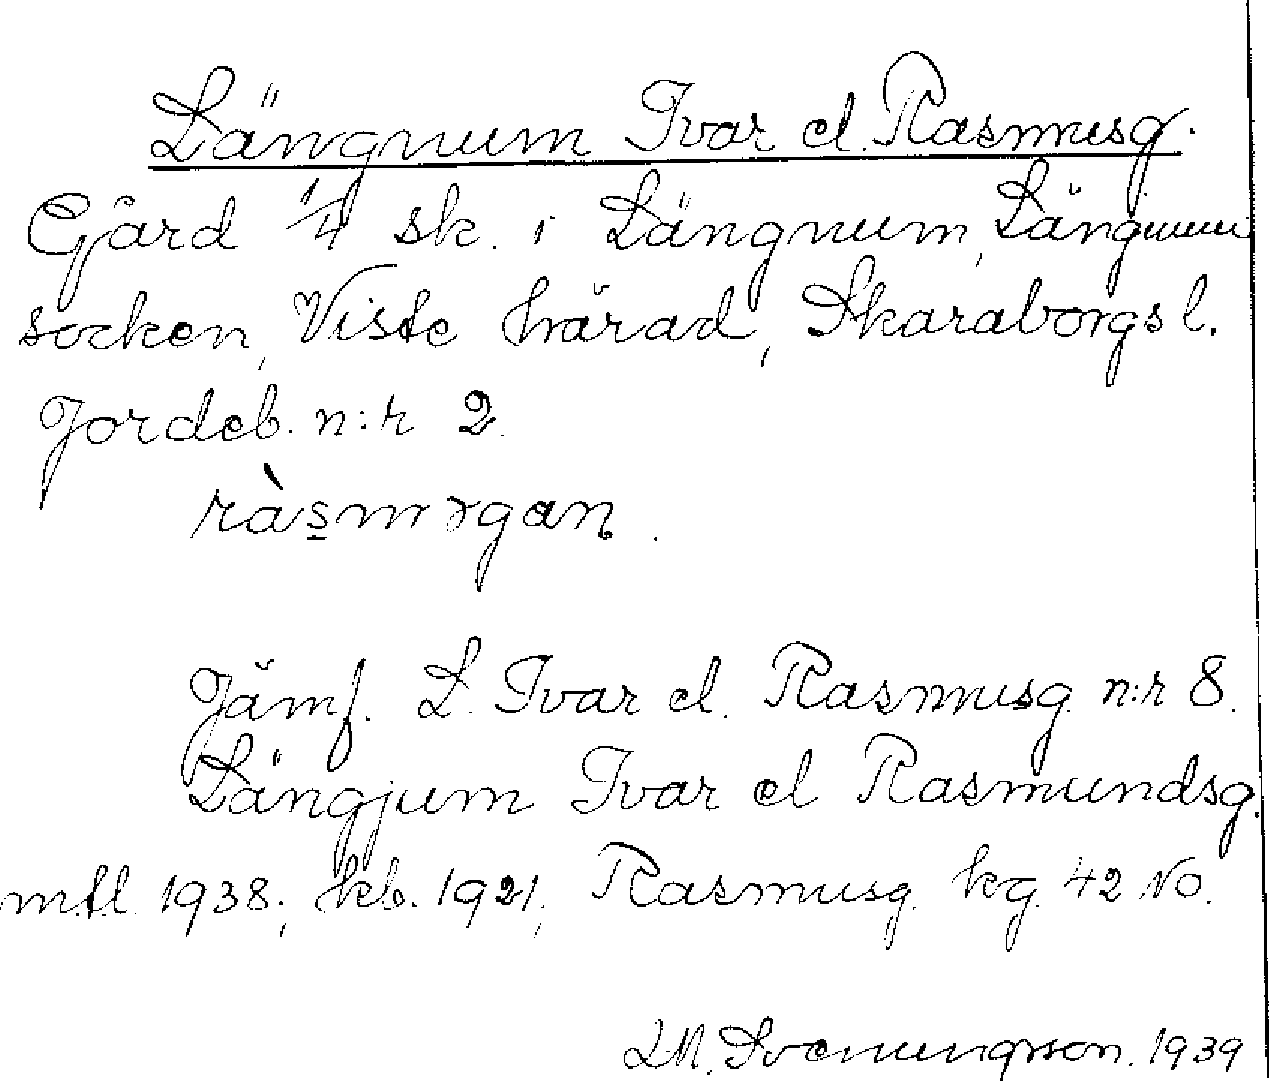 Längnum Ivar el. Rasmusg.
Gård 1/4 sk. i Längnum, Längnum
socken, Viste härad, Skaraborgs l.
Jordeb. n:r 2.
ràs̲mɤgan.
Jämf. L. Ivar el. Rasmusg. n:r 8.
Längjum Ivar el Rasmundsg.
mtl. 1938; kb. 1921, Rasmusg. kg. 42 NO.
LM. Svenungsson. 1939